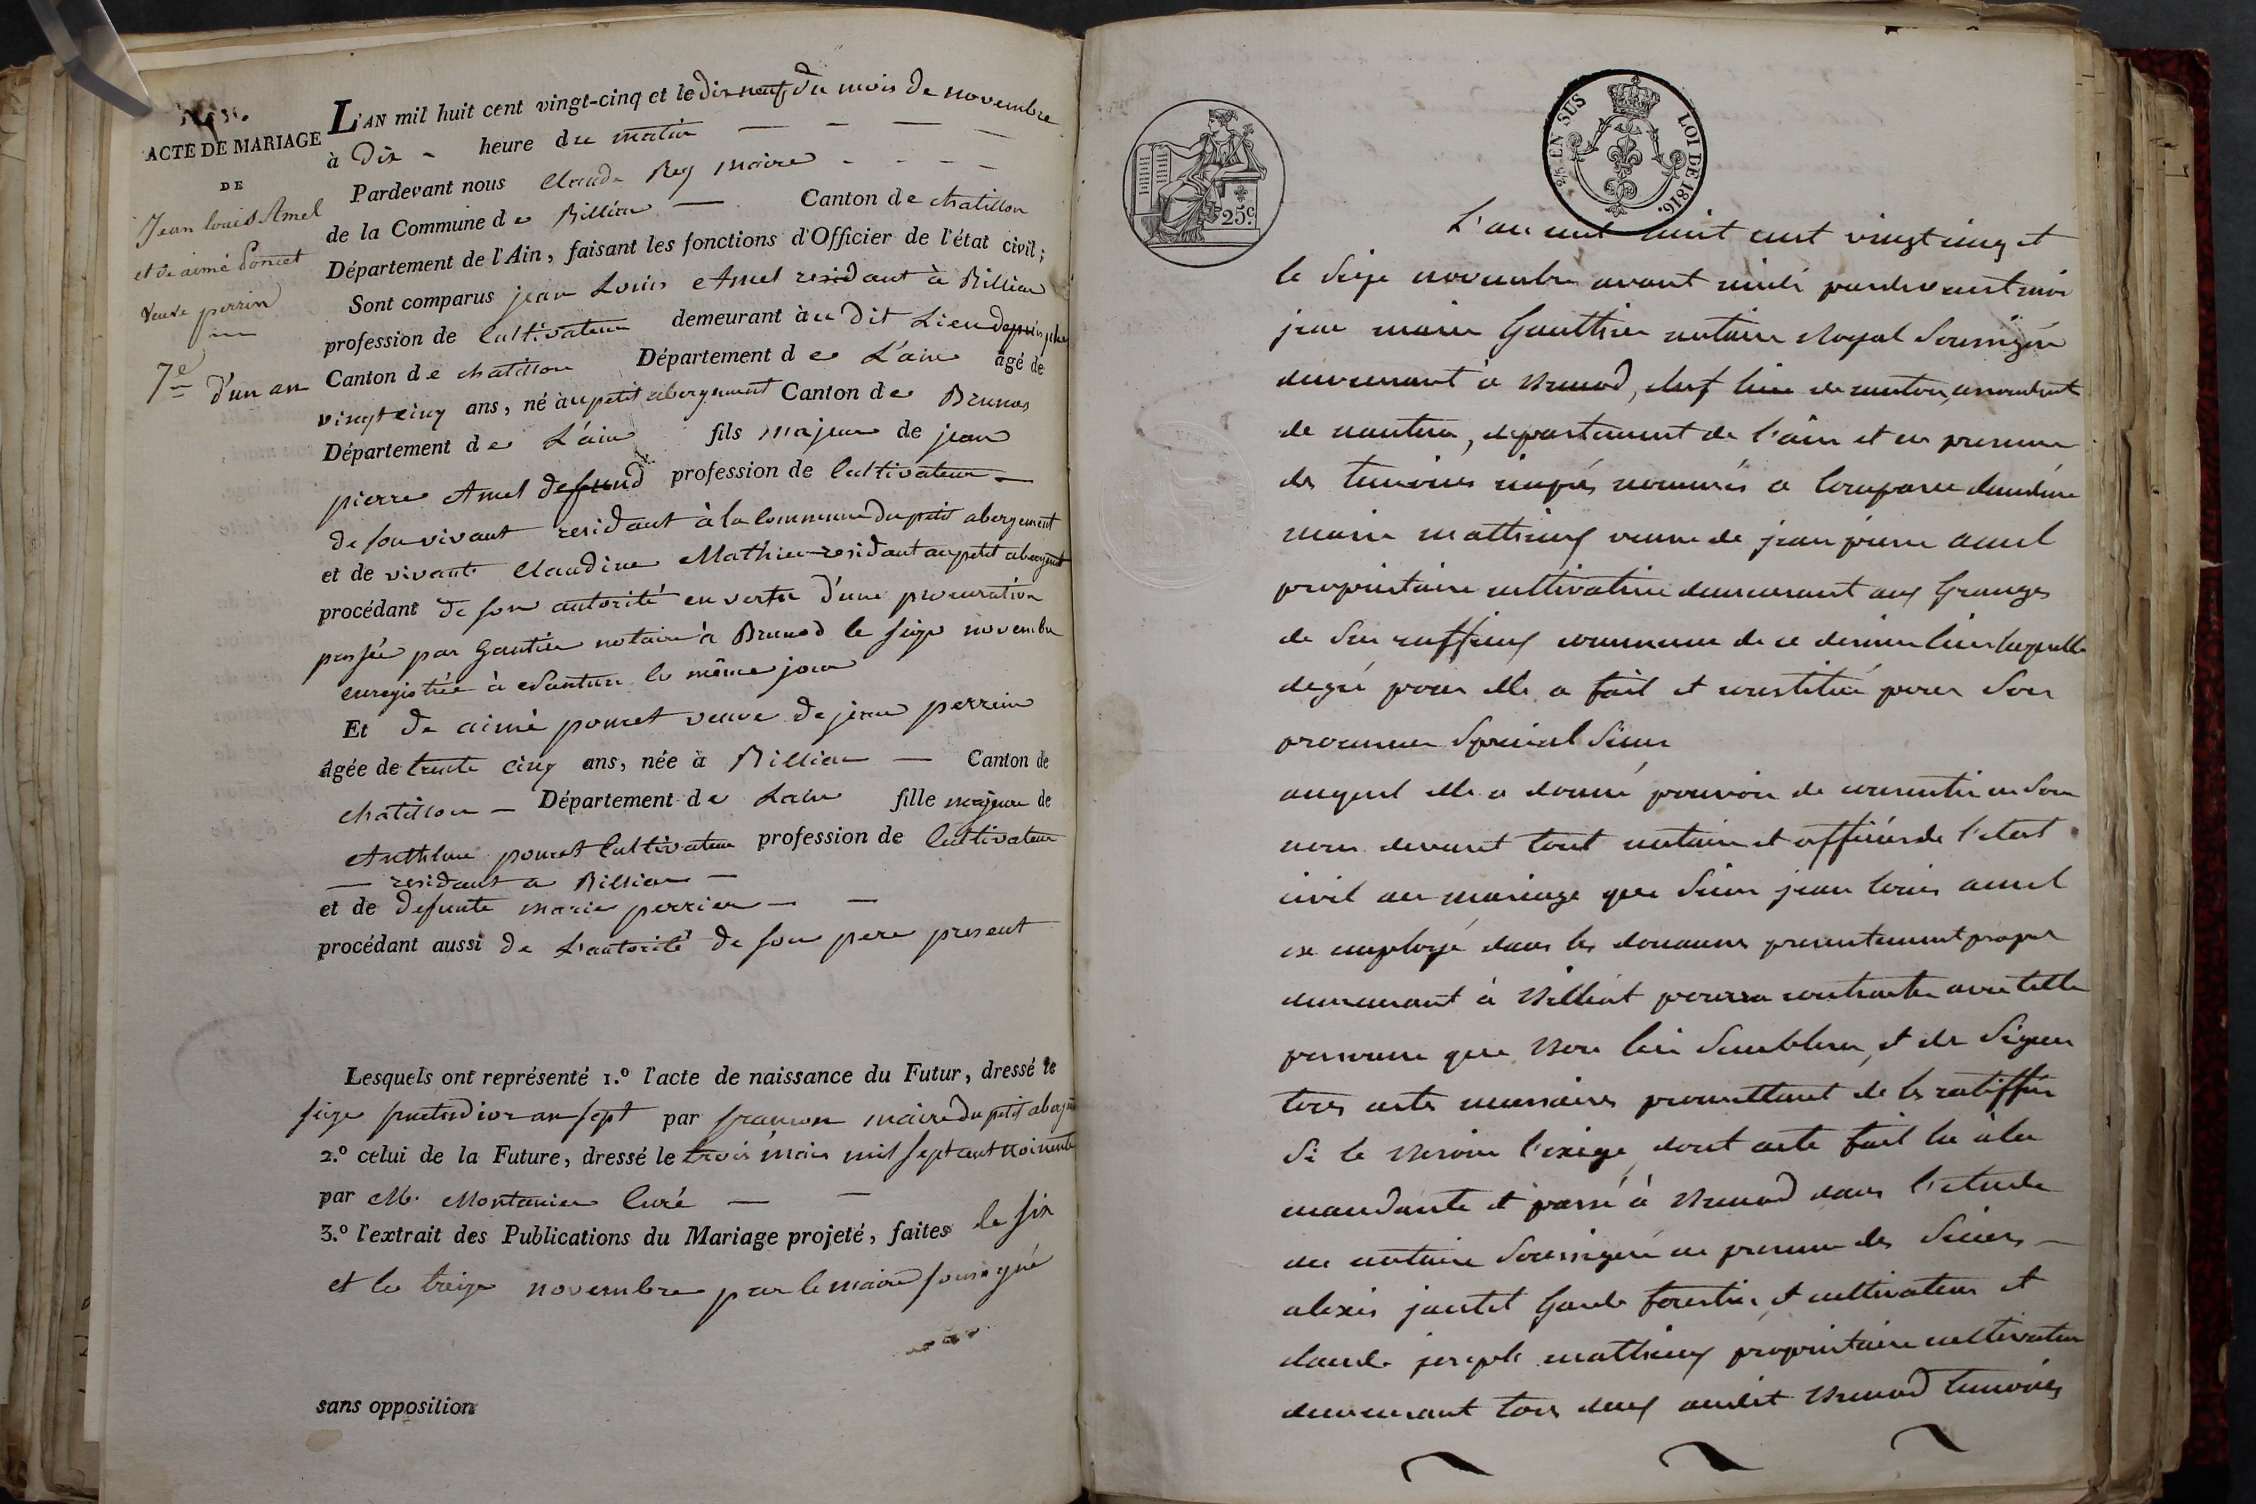 ACTE DE MARIAGE
DE
Jean louis Amel
et de aimé Poncet
veuve perrin
7e d'un an
L'AN mil huit cent vingt-cinq et le dix neuf du mois de novembre
à Dix heure du matin
Pardevant nous Claude Rey maire
de la Commune de Billiat Canton de chatillon
Département de l'Ain, faisant les fonctions d'Officier de l'état civil;
Sont comparus jean Louis Amel residant à Billiat
profession de Cultivateur demeurant àu Dit Lieu
Canton de chatillon Département de L'ain âgé de
vingt cinq ans, né àu petit abergement Canton de Brenod
Département de L'ain fils majeur de jean
pierre Amel defund profession de Cultivateur
de son vivant residant à la Commune du petit abergement
et de vivante Claudine Mathieu residant au petit abergement
procédant de son autorité en vertu d'une procuration
passée par Gautier notaire à Brenod le seize novembre
enregistrée à Nantua le même jour
Et de aimé poncet veuve de jean perrin
âgée de trente cinq ans, née à Billiat Canton de
chatillon Département de Lain fille majeure de
Anthelme poncet Cultivateur profession de Cultivateur
residant a Billiat
et de defunte marie perrier
procédant aussi de L'autorité de son pere present
Lesquels ont représenté 1.º l'acte de naissance du Futur, dressé le
seize fructidior an sept par maire du petit abergt
2.º celui de la Future, dressé le trois mars mil sept cent
par M. Montanier Curé
3.º l'extrait des Publications du Mariage projeté, faites le six
et le treize novembre par le maire sousigné
sans opposition
25c
EN SUS
LOI DE 1816.
L'an mil huit cent vingt cinq et
le seize novembre avant midi pardevant moi
jean marie Gautthier notaire Royal soussigné
demeurant à Brenod, chef lieu de canton, arrondiment
de nantua, departement de l'ain et en presence
des temoins nommés a comparu claudine
marie matthieux veuve de jean pierre amel
proprietaire cultivatrice demeurant aux Granges
de sur ruffieux commune de ce dernier lieu laquelle
degré pour elle a fait et constitué pour son
procureur special sieur
auquel elle a donné pouvoir de consentir en son
nom devant tout notaire et officier de l'etat
civil au mariage que sieur jean louis amel
ex employé dans les douannes presentement propre
demeurant à Billiat pourra contracter avec telle
personne que bon lui semblera, et de signer
tous actes necessaires promettant de les ratiffier
si le besoin l'exige, dont acte fait lu à la
mandante et passé à Brenod dans l'etude
du notaire soussigné en presence des sieurs
alexis jantet Garde forestier et cultivateur et
claude joseph matthieux proprietaire cultivateur
demeurant tous deux audit Brenod temoins